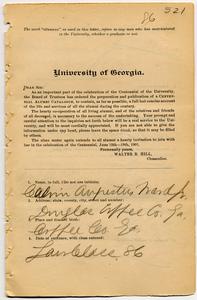 86 321
The word "alumnus" as used in this letter, refers to any man who has matriculated
in the University, whether a graduate or not.
University of Georgia.
DEAR SIR:
As an important part of the celebration of the Centennial of the University,
the Board of Trustees has ordered the preparation and publication of a CENTEN-
NIAL ALUMNI CATALOGUE, to contain, as far as possible, a full but concise account
of the life and services of all the alumni during the century.
The cordial cooperation of all living alumni, and of the relatives and friends
of all deceased, is necessary to the success of the undertaking. Your prompt and
careful attention to the inquiries set forth below will be a real service to the Uni-
versity, and will be most cordially appreciated. If you are not able to give the
information under any head, please leave the space blank, so that it may be filled
by others.
The alma mater again extends to all alumni a hearty invitation to join with
her in the celebration of the Centennial, June 15th-19th, 1901.
Fraternally yours,
WALTER B. HILL,
Chancellor.
1. Name, in full, (do not use initials)
Calvin Augustus Ward Jr.
2. Address; state, county, city, street and number:
Douglas Coffee Co. Ga.
3. Place and date of birth:
Coffee Co. Ga.
4. Date of entrance, with class entered:
Law Class, 86